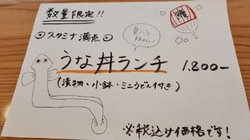 数量限定!!
スタミナ満点
うな丼ランチ 1.800-
(漬物・小鉢・ミニうどん付き)
※税込み価格です!